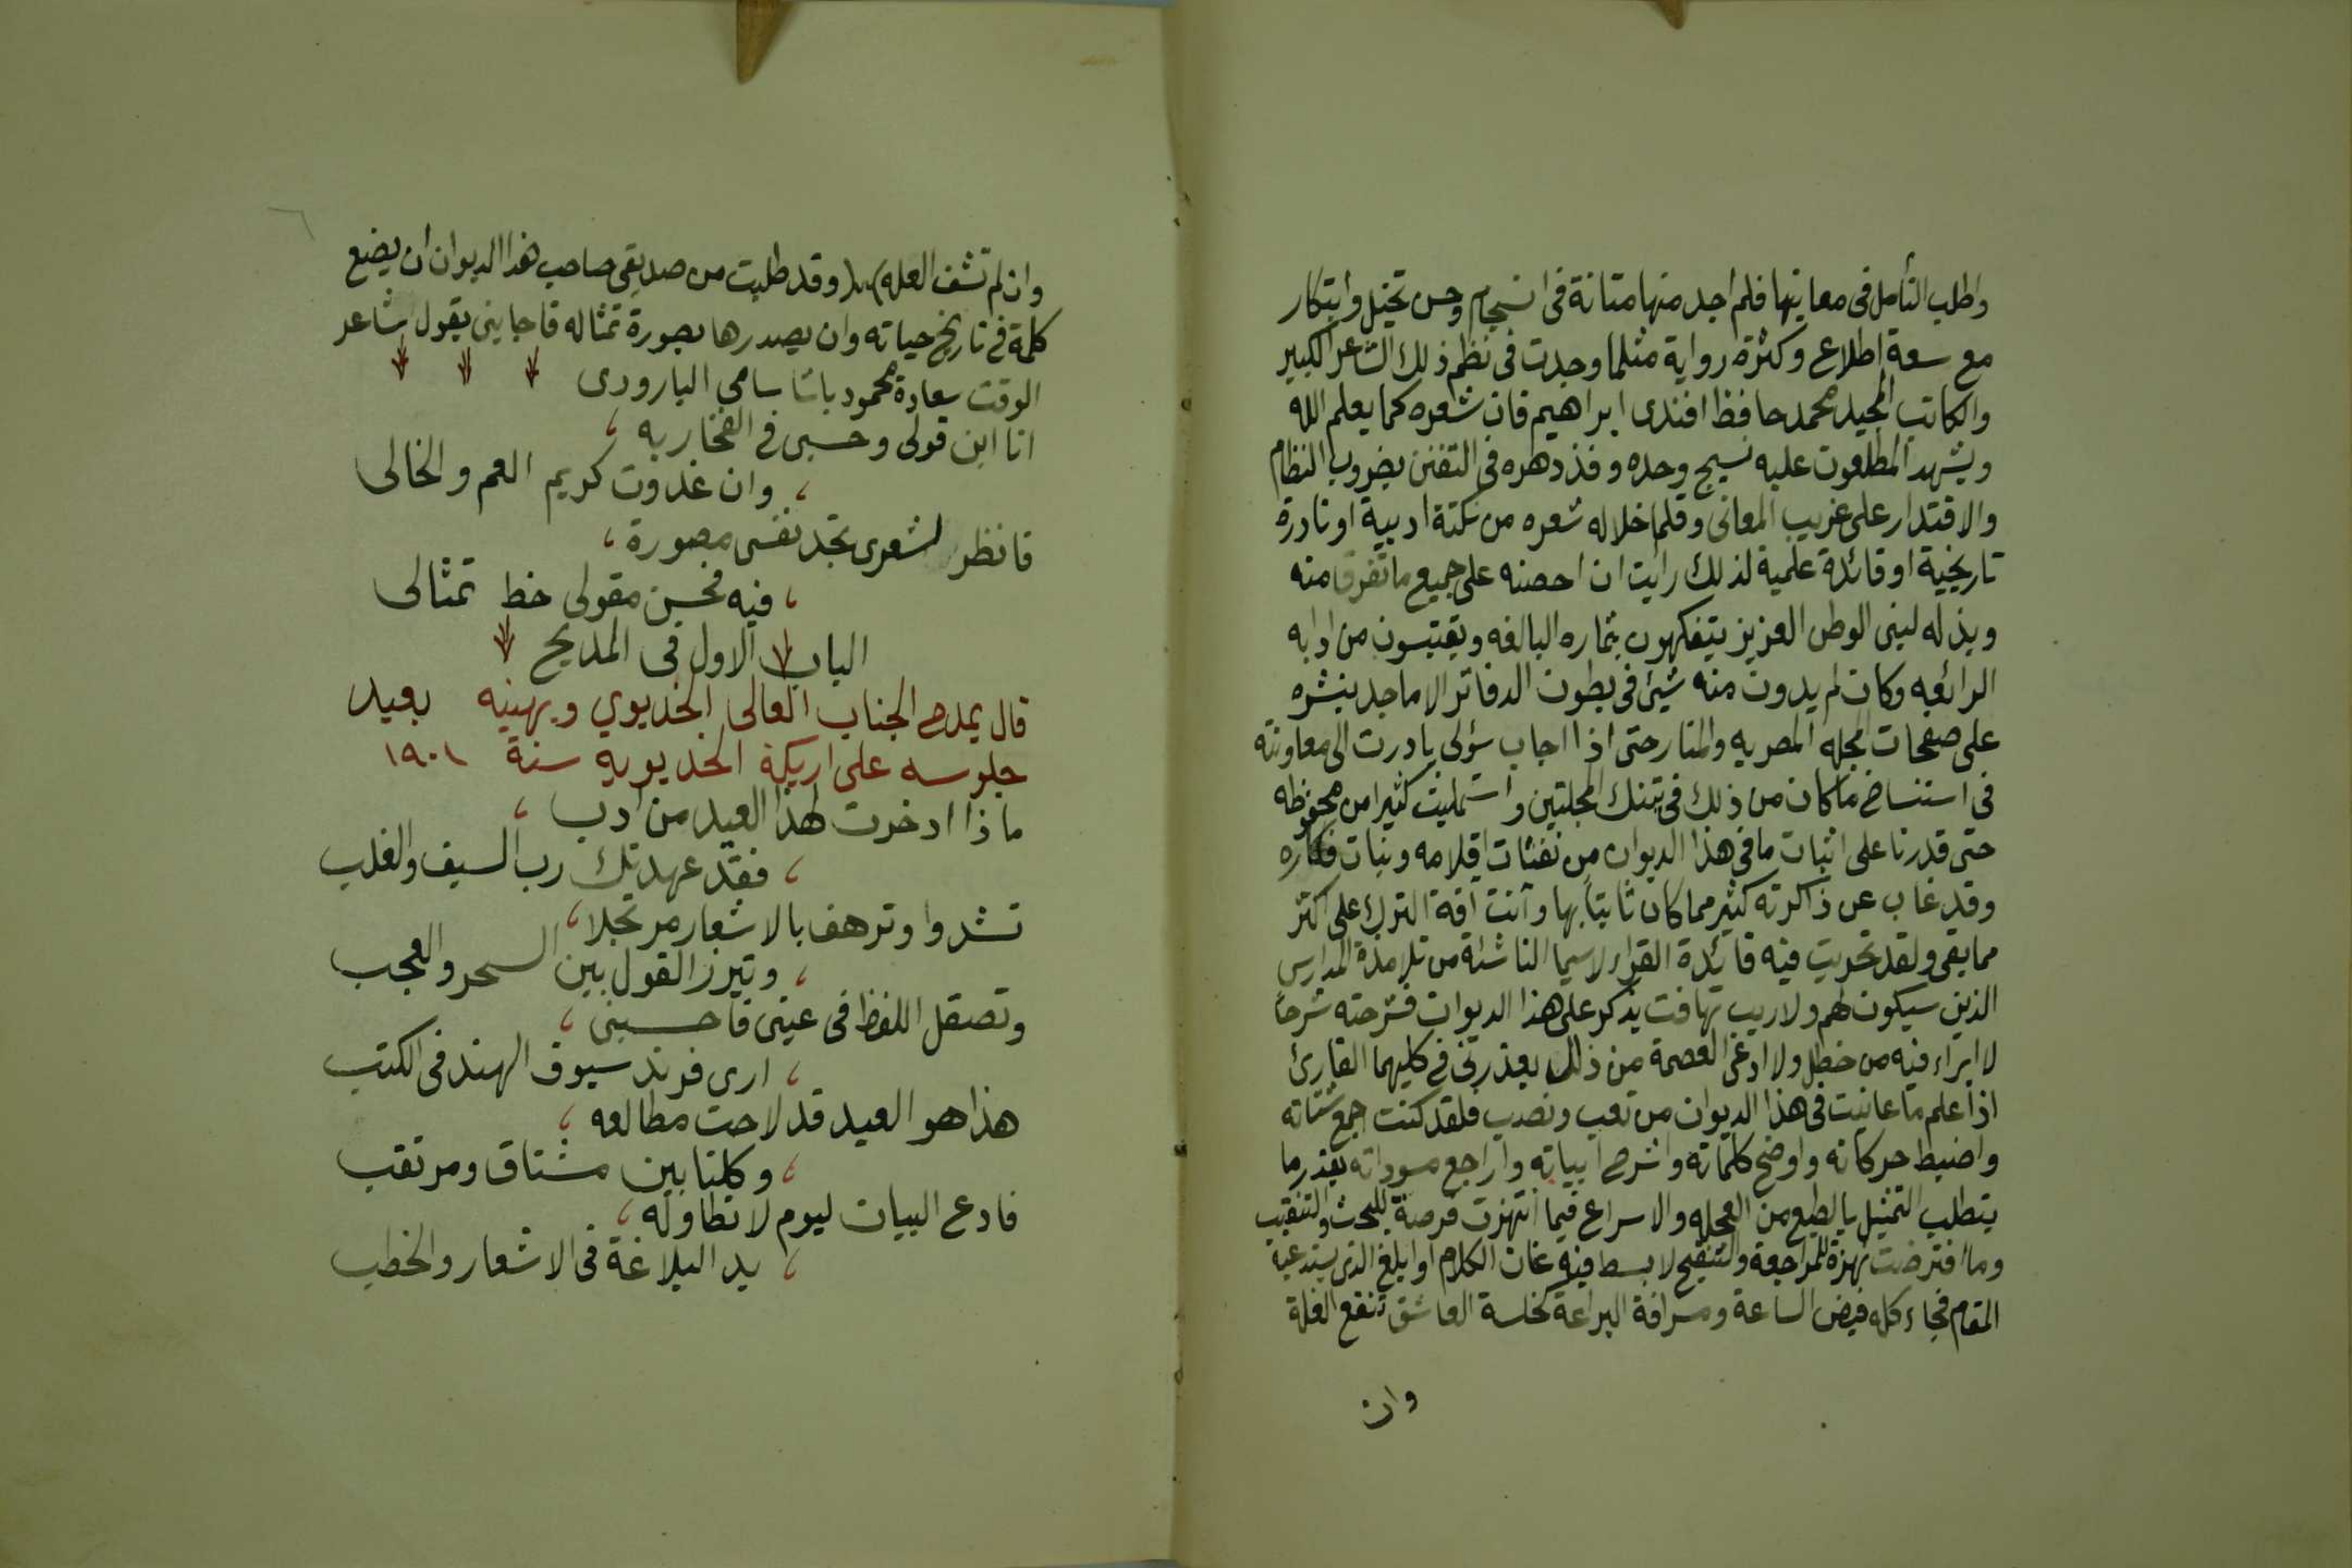 واطلب التأمل فى معانيها فلم اجد منها متانة فى انسجام وحسن تخيل وابتكار
مع سعة اطلاع وكثرة رواية مثلما وجدت فى نظم ذلك الشاعر الكبير
والكاتب المجيد محمد حافظ افندى ابراهيم فان شعره كما يعلم الله
ويشهد المطلعون عليه نسيج وحده وفذ دهره فى التفنن بضروب النظام
والاقتدار على غريب المعانى وقلما خلا له شعره من نكتة ادبية او نادرة
تاريخية او فائدة علمية لذلك رايت ان احضنه على جميع ما تفرق منه
وبذله لبنى الوطن العزيز يتفكهون بثماره اليالغه ويقتبسون من ادابه
الرائعه وكان لم يدون منه شيئ فى بطون الدفاتر الا ما جد بنشره
على صفحات المجله المصريه والمنار حتى اذا اجاب سؤلى بادرت الى معاونته
فى استنساخ ما كان من ذلك فى تينك المجلتين واستمليت كثيرا من محفوظه
حتى قدرنا على اثبات ما فى هذا الديوان من نفثات اقلامه وبنات افكاره
وقد غاب عن ذاكرته كثير مما كان ثابتا بها وأتت آفة الترك على اكثر
مما بقى ولقد تحريت فيه فائدة القراء لاسيما الناشئه من تلامذة المدارس
الذين سيكون لهم ولاريب تهافت يذكر على هذا الديوان فشرحته شرحا
لا ابراء فيه من خطل ولا ادعى العصمة من ذلل يعذرنى فى كليهما القارئ
اذا علم ما عانيت فى هذا الديوان من تعب ونصب فلقد كنت اجمع شتاته
واضبط حركاته واوضح كلماته واشرح ابياته واراجع مسوداته بقدر ما
يتطلب التمثيل بالطبع من العجله والاسراع فيما انتهزت فرصة للبحث والتنقيب
وما افترضت نهزة للمراجعة والتنقيح لابسط فيه عنان الكلام او ابلغ الذى يستدعيه
المقام فجاء كله فيض الساعة ومسرافة البراعة كخلسة العاشق تنقع الغلة
وان
وان لم تشف العله) وقد طلبت من صديقى صاحب هذا الديوان ان يضع
كلمة فى تاريخ حياته وان يصدرها بصورة تمثاله فاجابنى بقول شاعر
الوقت سعادة محمود باشا سامى البارودى
انا ابن قولى وحسبى فى الفخار به ،
، وان غدوت كريم العم والخالى
فانظر لشعرى تجد نفسى مصورة ،
، فيه فحسن مقولى خط تمثالى
الباب الاول فى المديح
قال يمدح الجناب العالى الخديوي ويهنيه بعيد
جلوسه على اريكة الخديويه سنة ١٩٠١
ماذا ادخرت لهذا العيد من ادب ،
، فقد عهدتك رب السيف والغلب
تشدوا وترهف بالاشعار مرتجلا ،
، وتبرز القول بين السحر والعجب
وتصقل اللفظ فى عينى فاحسبنى ،
، ارى فرند سيوف الهند فى الكتب
هذا هو العيد قد لاحت مطالعه ،
، وكلنا بين مشتاق ومرتقب
فادع البيان ليوم لا تطاوله ،
، يد البلاغة فى الاشعار والخطب